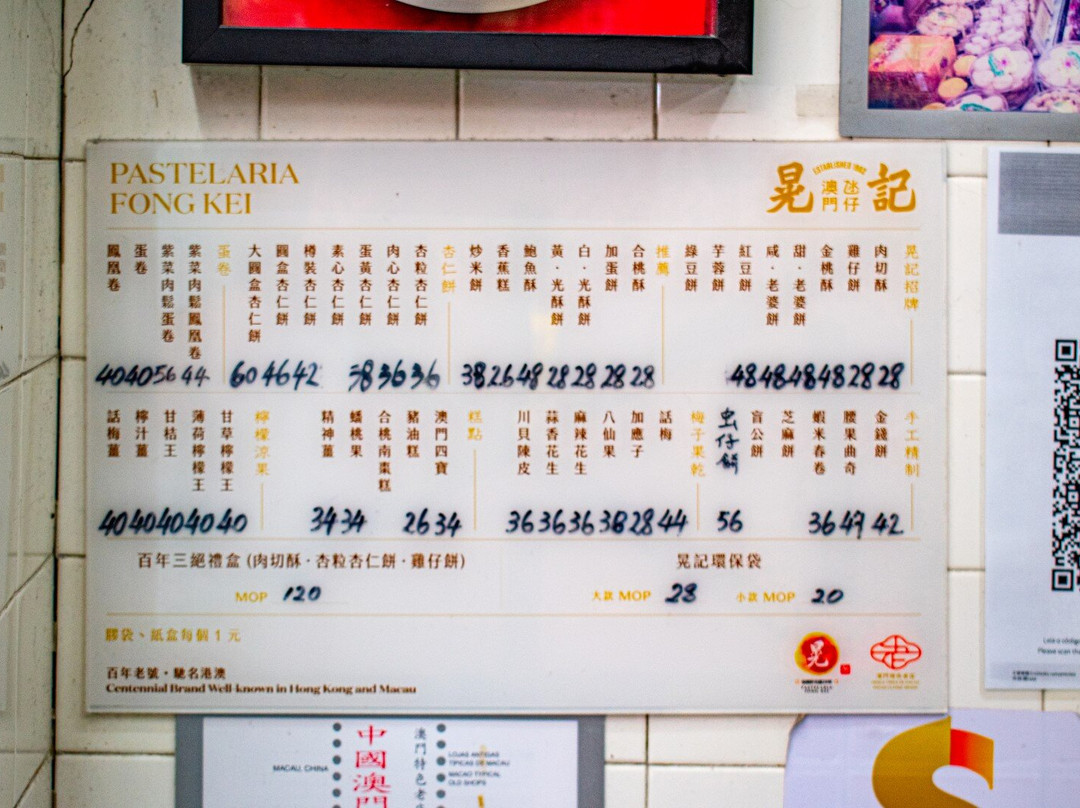 PASTELARIA
FONG KEI
ESTABLISHED 1902
晃記
澳門
氹仔
晃記招牌
肉切酥 28
雞仔餅 28
金桃酥 48
甜·老婆餅 48
咸·老婆餅 48
紅豆餅 48
芋蓉餅
綠豆餅
推薦
合桃酥 28
加蛋餅 28
白·光酥餅 28
黃·光酥餅 28
鮑魚酥 48
香蕉糕 26
炒米餅 38
杏仁餅
杏粒杏仁餅 36
肉心杏仁餅 36
蛋黃杏仁餅 38
素心杏仁餅
樽裝杏仁餅 42
圓盒杏仁餅 46
大圓盒杏仁餅 60
蛋卷
紫菜肉鬆鳳凰卷 44
紫菜肉鬆蛋卷 56
蛋卷 40
鳳凰卷 40
手工精制
金錢餅 42
腰果曲奇 47
蝦米春卷 36
芝麻餅
盲公餅
虫仔餅 56
梅子果乾
話梅 44
加應子 28
八仙果 38
麻辣花生 36
蒜香花生 36
川貝陳皮 36
糕點
澳門四寶 34
豬油糕 26
合桃南棗糕
蟠桃果 34
精神薑 34
檸檬涼果
甘草檸檬王 40
薄荷檸檬王 40
甘桔王 40
檸汁薑 40
話梅薑 40
百年三絕禮盒 (肉切酥·杏粒杏仁餅·雞仔餅)
MOP 120
晃記環保袋
大款 MOP 28 小款 MOP 20
膠袋、紙盒每個 1 元
百年老號·馳名港澳
Centennial Brand Well-known in Hong Kong and Macau
晃
MACAU, CHINA
中國澳門
澳門特色老
LOJAS ANTIGAS
TÍPICAS DE MACAU
MACAO TYPICAL
OLD SHOPS